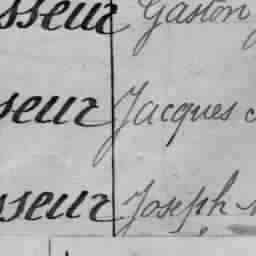 sseur Gaston
seur Jacques
sseur Joseph